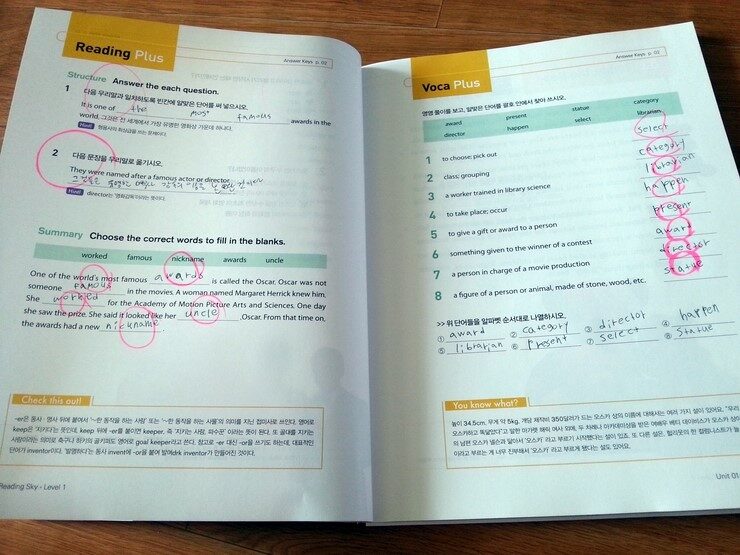 Reading Plus
Answer Keys p. 02
Structure Answer the each question.
1 다음 우리말과 일치하도록 빈칸에 알맞은 단어를 써 넣으시오.
It is one of the most famous awards in the
world. 그것은 전 세계에서 가장 유명한 영화상 가운데 하나다.
Hint! 형용사의 최상급을 쓰는 문제이다.
2 다음 문장을 우리말로 옮기시오.
They were named after a famous actor or director.
Hint! director는 '영화감독'이라는 뜻이다.
Summary Choose the correct words to fill in the blanks.
worked famous nickname awards uncle
One of the world's most famous awards is called the Oscar. Oscar was not
someone famous in the movies. A woman named Margaret Herrick knew him.
She worked for the Academy of Motion Picture Arts and Sciences. One day
she saw the prize. She said it looked like her uncle, Oscar. From that time on,
the awards had a new nickname.
Check this out!
-er은 동사·명사 뒤에 붙여서 '~한 동작을 하는 사람' 또는 '~한 동작을 하는 사물'의 의미를 지닌 접미사로 쓰인다. 영어로
keep은 '지키다'는 뜻인데, keep 뒤에 -er를 붙이면 keeper, 즉 '지키는 사람, 파수꾼' 이라는 뜻이 된다. 또 골대를 지키는
사람이라는 의미로 축구나 하키의 골키퍼도 영어로 goal keeper라고 쓴다. 참고로 -er 대신 -or을 쓰기도 하는데, 대표적인
단어가 inventor이다. '발명하다'는 동사 invent에 -or을 붙여 발명가 inventor가 만들어진 것이다.
Reading Sky - Level 1
Voca Plus
Answer Keys p. 02
영영 풀이를 보고, 알맞은 단어를 괄호 안에서 찾아 쓰시오.
award present statue category
director happen select librarian
1 to choose; pick out select
2 class; grouping category
3 a worker trained in library science librarian
4 to take place; occur happen
5 to give a gift or award to a person present
6 something given to the winner of a contest award
7 a person in charge of a movie production director
8 a figure of a person or animal, made of stone, wood, etc. statue
>> 위 단어들을 알파벳 순서대로 나열하시오.
① award ② category ③ director ④ happen
⑤ librarian ⑥ present ⑦ select ⑧ statue
You know what?
높이 34.5cm, 무게 약 5kg, 개당 제작비 350달러가 드는 오스카 상의 이름에 대해서는 여러 가지 설이 있어요. "우리
Unit 01